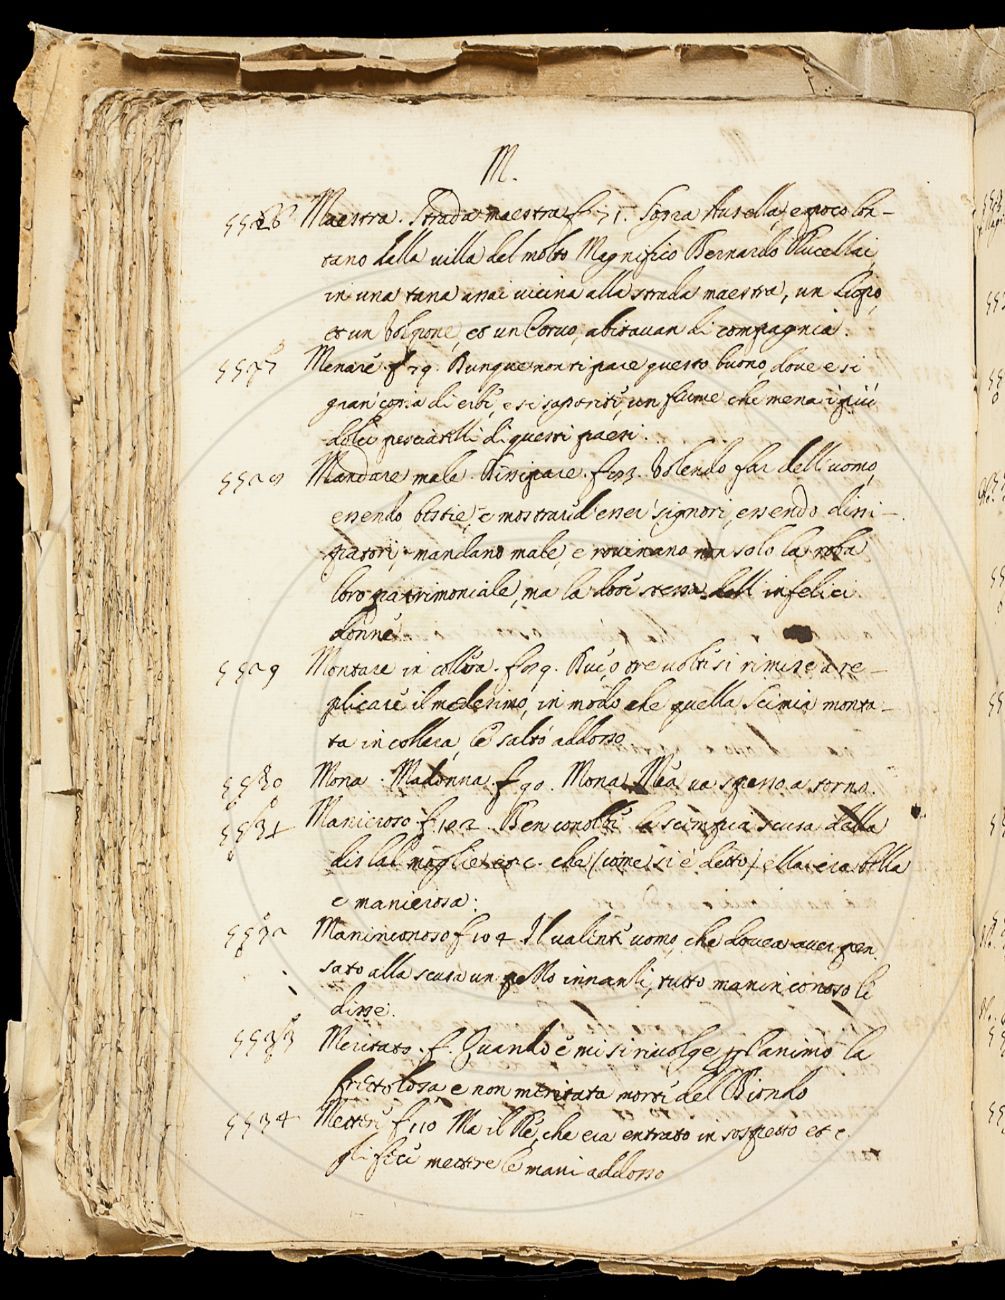 M.
5526 Maestra. Strada maestra f. 71. Sopra Ausella, e poco lon-
tano dalla villa del molto Magnifico Bernardo Rucellai,
in una tana assai vicina alla strada maestra, un Lupo,
et un Volpone, et un Corvo, abitavan di compagnia.
5527 Menare f. 79. Dunque non ti piace questo buono, dove e si
gran copia di erbe, e si saporite, un fiume che mena i più
dolci pesciatelli di questi paesi.
5528 Mandare male. Dissipare. f. Volendo far dell'uomo,
essendo bestie, e mostrar d'esser signori, essendo dissi-
patori, mandano male, e rovinano non solo la roba
loro patrimoniale, ma la dote stessa dell'infelici
donne.
5529 Montare in collera. f. Due, o tre volte si rimise a re-
plicare il medesimo, in modo che quella Scimia monta-
ta in collera, le saltò addosso
5530 Mona. Madonna. f. 90. Mona Mea va spesso a torno.
5531 Manieroso f. 102. Ben conobbe la scimpia scusa della
disleal moglie et c. che (come si è detto) ella era bella
e manierosa.
5532 Maninconoso f. 104. Il valent'uomo, che dovea aver pen
sato alla scusa un pezzo innanzi, tutto maninconoso le
disse.
5533 Meritato. f. Quando e' mi si rivolge per l'animo la
frettolosa, e non meritata morte del Biondo
5534 Mettere f. 110 Ma il Re, che era entrato in sospetto et c.
gli fece mettere le mani addosso